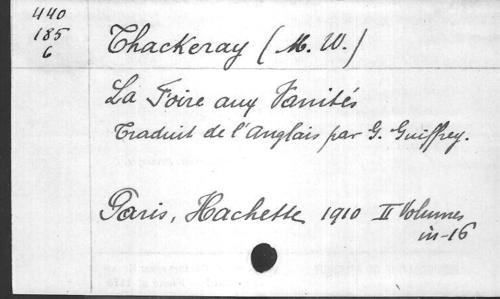 440
185
6
Thackeray (M. W.)
La Foire aux Vanités
Traduit de l'Anglais par G. Guiffrey.
Paris, Hachette 1910 II Volumes
in-16